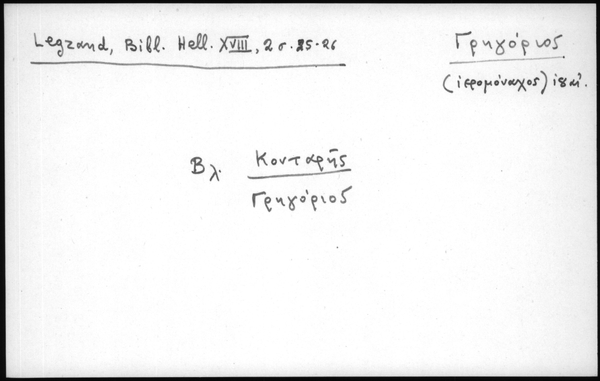 Legrand, Bibl. Hell. XVIII, 2 σ. 25-26
Γρηγόριος
(ἱερομόναχος) ιη αἰ.
Βλ. Κονταρῆς
Γρηγόριος